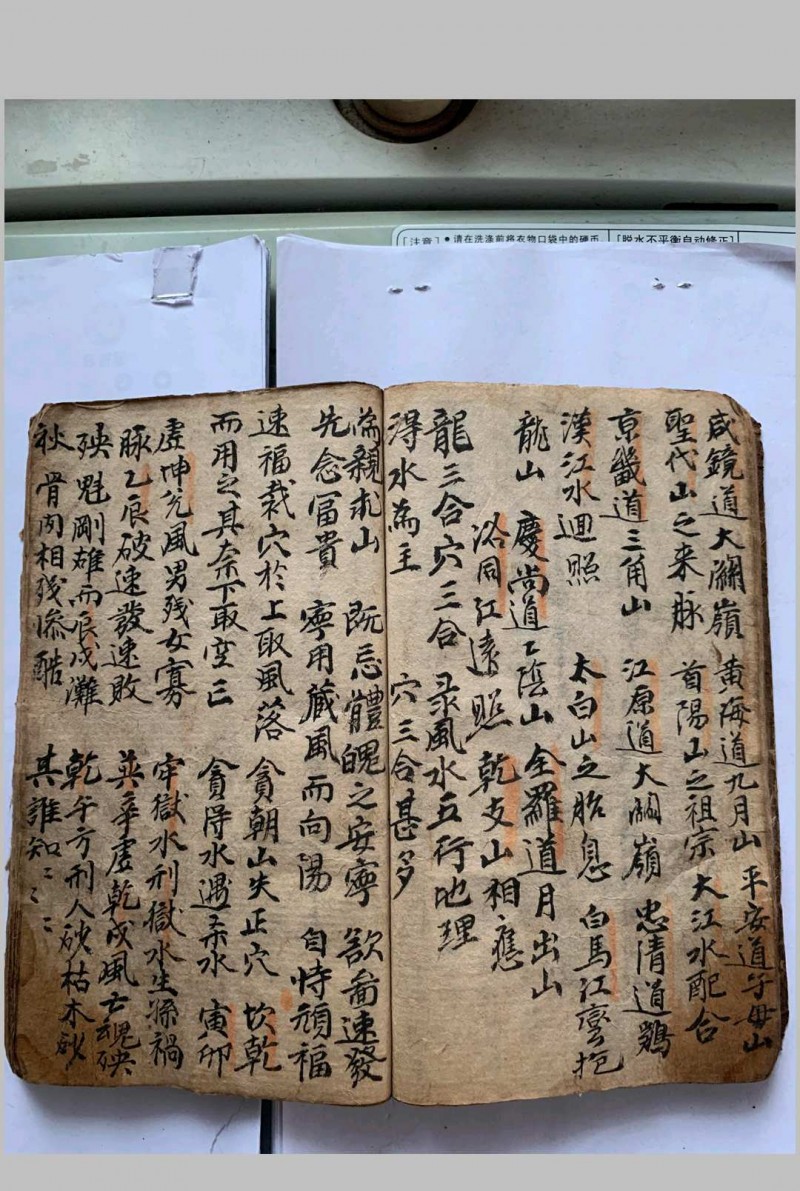 [注意]●请在洗涤前将衣物口袋中的硬币
[脱水不平衡自动修正]
咸鏡道大關嶺 黃海道九月山 平安道子母山
聖代山之来脉 首陽山之祖宗 大江水配合
京畿道三角山 江原道大關嶺 忠清道鷄
漢江水廻照 太白山之胎息 白馬江彎抱
龍山 慶尚道乙陰山 全羅道月出山
洛同江遠照 乾支山相應
龍三合穴三合 录風水五行地理
淂水為主 穴三合甚多
為親求山 既忌體魄之安寧 欲啚速發
先念冨貴 寧用藏風而向陽 自恃頑福
速福裁穴於上取風落 貪朝山失正穴 坎乾
而用之其奈下取空亡 貪淂水遇柔水 寅卯
虛坤兌風男残女寡 牢獄水刑獄水生孫禍
脉乙辰破速發速敗 英辛虛乾戌風亡魂殃
殃魁剛雄而辰戌灘 乾午方刑人砂枯木砂
秋骨肉相残惨酷 其誰知〻〻〻